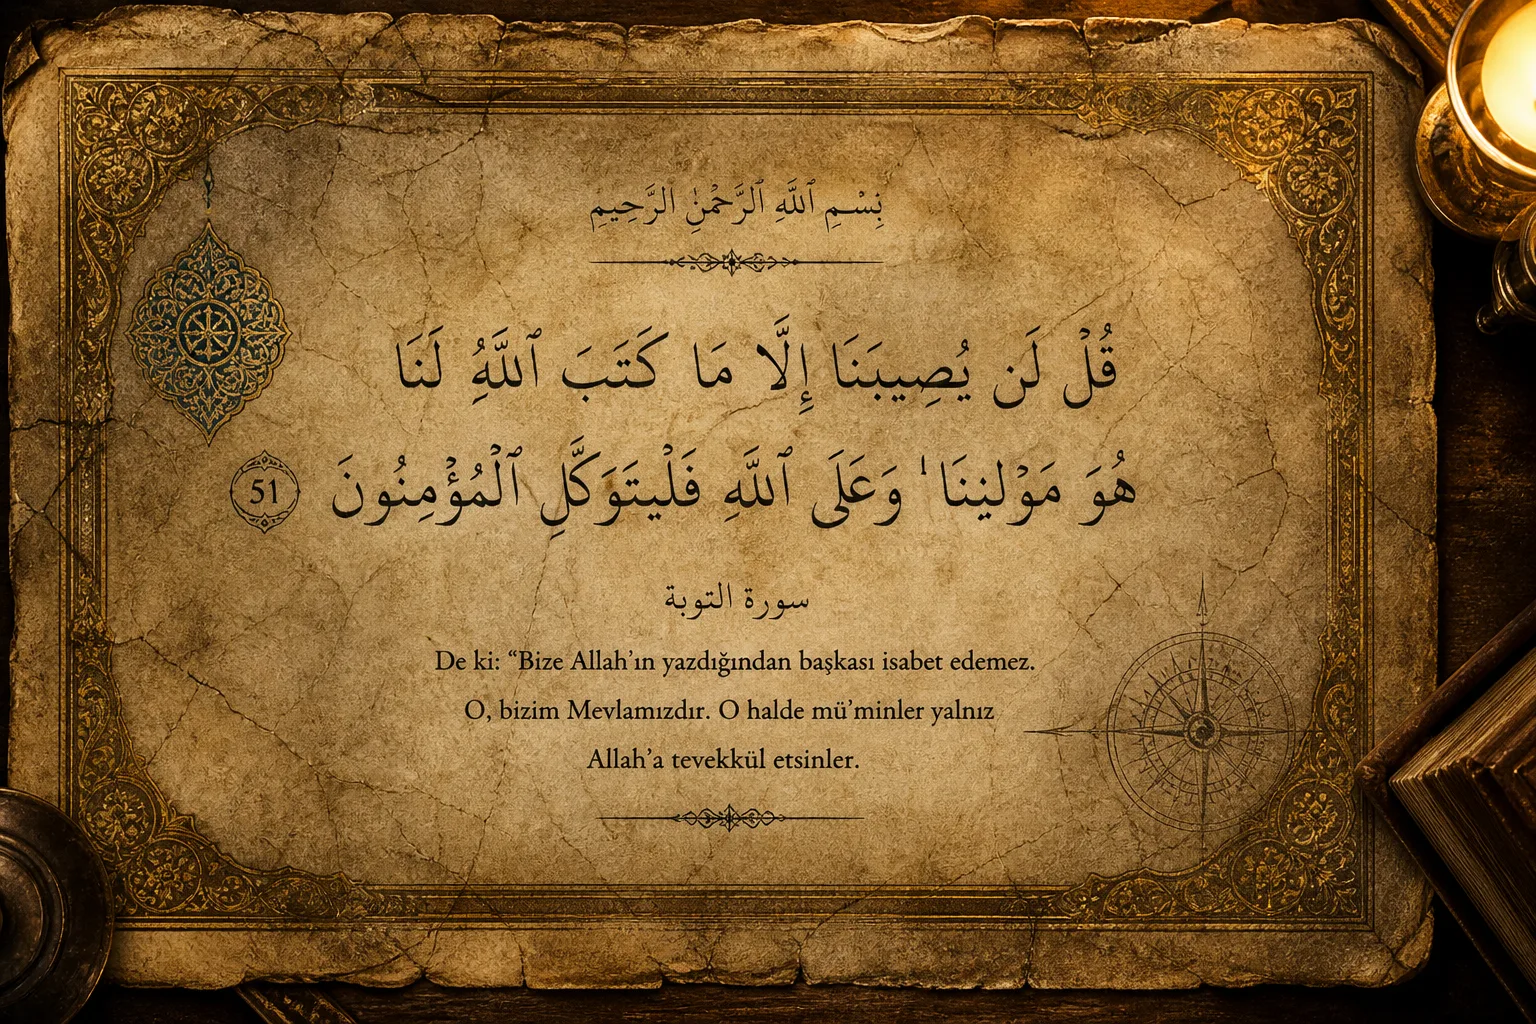 بِسْمِ ٱللَّهِ ٱلرَّحْمَٰنِ ٱلرَّحِيمِ
قُلْ لَن يُصِيبَنَا إِلَّا مَا كَتَبَ ٱللَّهُ لَنَا
هُوَ مَوْلَيْنَنَا ۚ وَعَلَى ٱللَّهِ فَلْيَتَوَكَّلِ ٱلْمُؤْمِنُونَ 51
سورة التوبة
De ki: “Bize Allah’ın yazdığından başkası isabet edemez.
O, bizim Mevlamızdır. O halde mü’minler yalnız
Allah’a tevekkül etsinler.